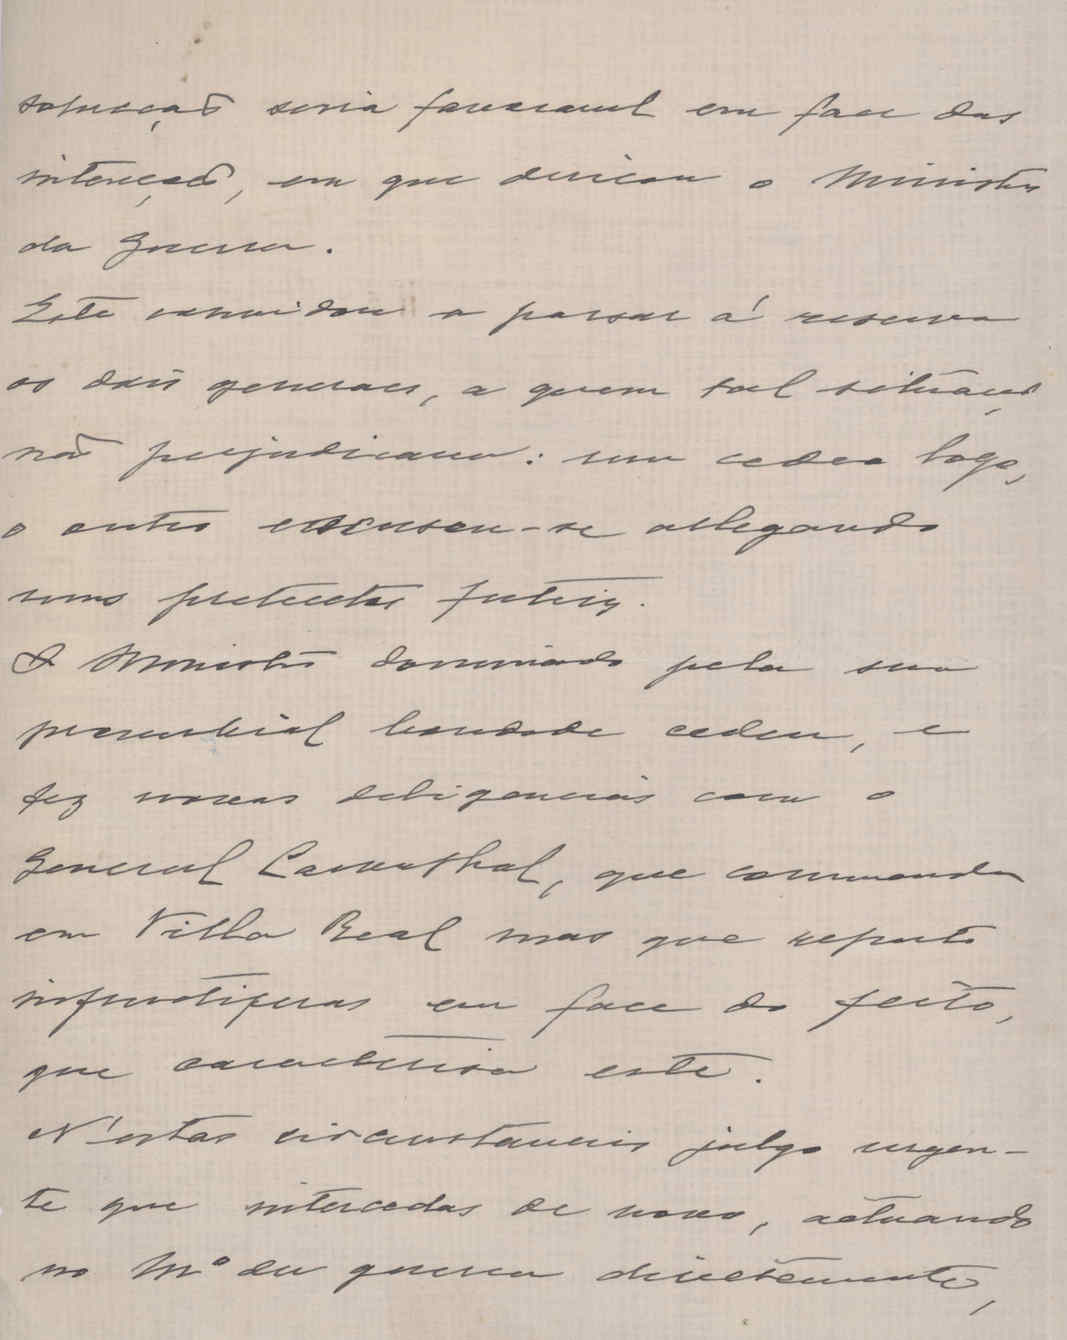 solução seria favoravel em face das
intenções, em que deixou o Ministro
da Guerra.
Este convidou a passar á reserva
os dois generaes, a quem tal situação
não prejudicava: um cedeu logo,
o outro escusou-se allegando
uns pretextos futeis.
O Ministro dominado pela sua
proverbial bondade cedeu, e
fez novas deligencias com o
General Carvalhal, que commanda
em Villa Real mas que reputo
infructiferas em face do feitio,
que caracterisa este.
N'estas circunstancias julgo urgen-
te que intercedas de novo, actuando
no Mº da guerra directamente,